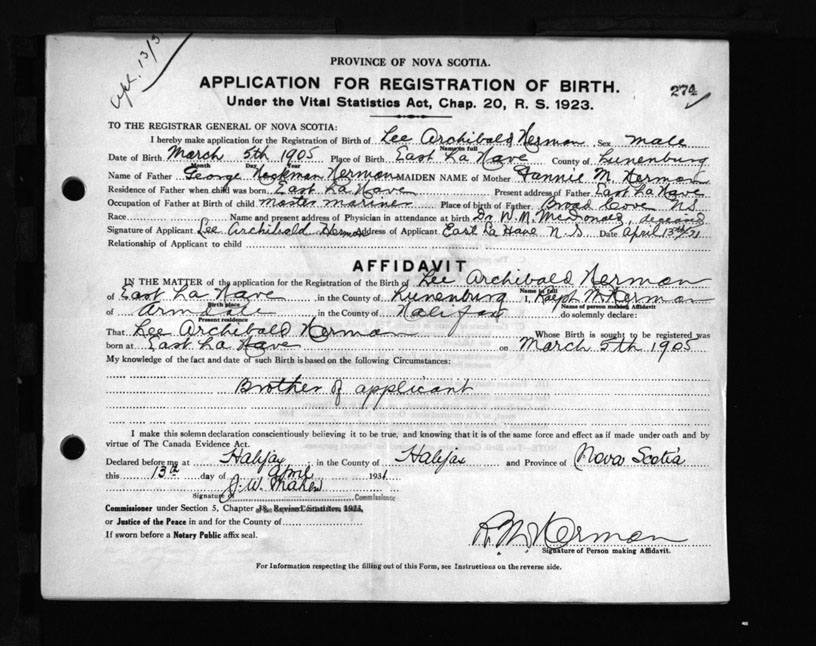 Apl. 13/3
PROVINCE OF NOVA SCOTIA.
APPLICATION FOR REGISTRATION OF BIRTH.
274
Under the Vital Statistics Act, Chap. 20, R. S. 1923.
TO THE REGISTRAR GENERAL OF NOVA SCOTIA:
I hereby make application for the Registration of Birth of Lee Archibald Herman Sex male
Name in full
Date of Birth March 5th 1905 Place of Birth East La Have County of Lunenburg
Month Day Year
Name of Father George Hackman Herman MAIDEN NAME of Mother Fannie M. Herman
Residence of Father when child was born East La Have Present address of Father East La Have
Occupation of Father at Birth of child master mariner Place of birth of Father Broad Cove N.S
Race Name and present address of Physician in attendance at birth Dr W. N. MacDonald, deceased
Signature of Applicant Lee Archibald Herman Address of Applicant East La Have N.S Date April 13th/31
Relationship of Applicant to child
AFFIDAVIT
IN THE MATTER of the application for the Registration of the Birth of Lee Archibald Herman
Name in full
of East La Have in the County of Lunenburg I, Ralph M Herman
Birth place Name of person making Affidavit
of Armdale in the County of Halifax do solemnly declare:
Present residence
That Lee Archibald Herman Whose Birth is sought to be registered was
born at East La Have on March 5th 1905
My knowledge of the fact and date of such Birth is based on the following Circumstances:
Brother of applicant
I make this solemn declaration conscientiously believing it to be true, and knowing that it is of the same force and effect as if made under oath and by
virtue of The Canada Evidence Act.
Declared before me at Halifax in the County of Halifax and Province of Nova Scotia
this 13th day of April 1931
J. W.
Signature of Commissioner
Commissioner under Section 5, Chapter 18, Revised Statutes 1923,
or Justice of the Peace in and for the County of
If sworn before a Notary Public affix seal.
R. M. Herman
Signature of Person making Affidavit.
For Information respecting the filling out of this Form, see Instructions on the reverse side.